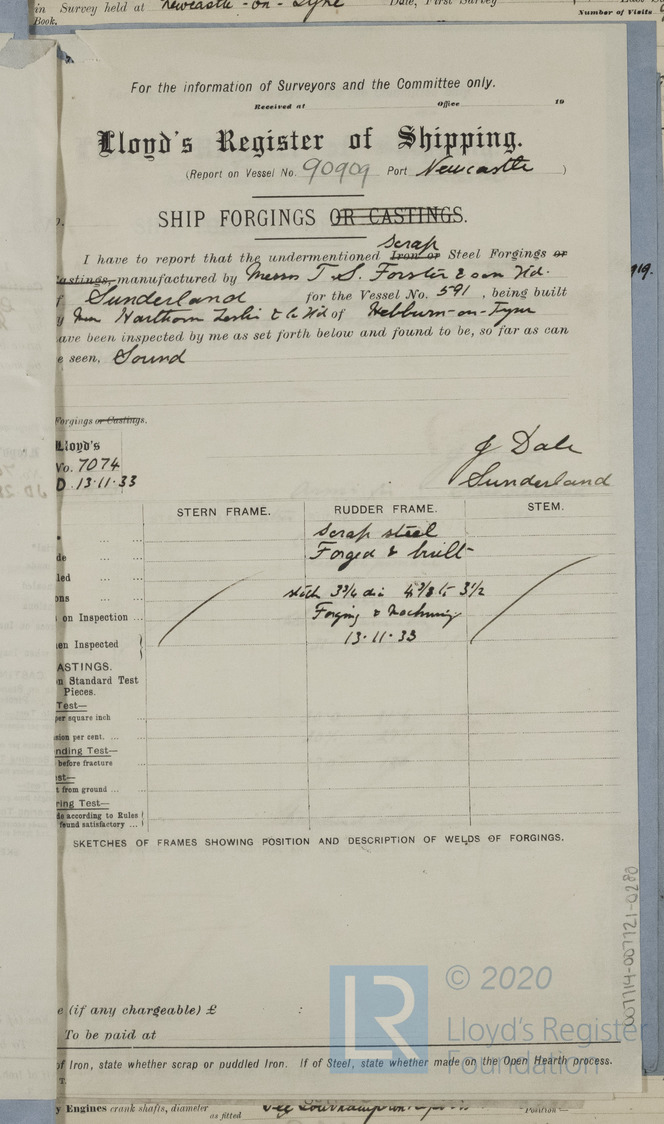 in Survey held at Newcastle-on-Tyne Date, First Survey
Book.
Number of Visits
For the information of Surveyors and the Committee only.
Received at Office 19
Lloyd's Register of Shipping.
(Report on Vessel No. 90909 Port Newcastle )
SHIP FORGINGS OR CASTINGS.
Scrap
I have to report that the undermentioned Iron or Steel Forgings or
Castings, manufactured by Messrs T. S. Forster & Son Ltd.
Sunderland for the Vessel No. 591, being built
y Hawthorn Leslie & Co Ltd of Hebburn-on-Tyne
ave been inspected by me as set forth below and found to be, so far as can
e seen, Sound
919.
Forgings or Castings,
Lloyd's
No. 7074
D 13.11.33
J Dale
Sunderland
STERN FRAME. RUDDER FRAME. STEM.
Scrap steel
de Forged & built
led
ons 3 3/4 dia 4 3/8 to 3 1/2
on Inspection Forging & Machining
en Inspected 13.11.33
ASTINGS.
n Standard Test
Pieces.
Test—
per square inch
sion per cent.
nding Test—
before fracture
st—
t from ground
ring Test—
de according to Rules
found satisfactory
SKETCHES OF FRAMES SHOWING POSITION AND DESCRIPTION OF WELDS OF FORGINGS.
007714-007721-0280
e (if any chargeable) £ :
To be paid at
© 2020
Lloyd's Register
Foundation
LR
of Iron, state whether scrap or puddled Iron. If of Steel, state whether made on the Open Hearth process.
T.
y Engines crank shafts, diameter as fitted See Southampton Report Position